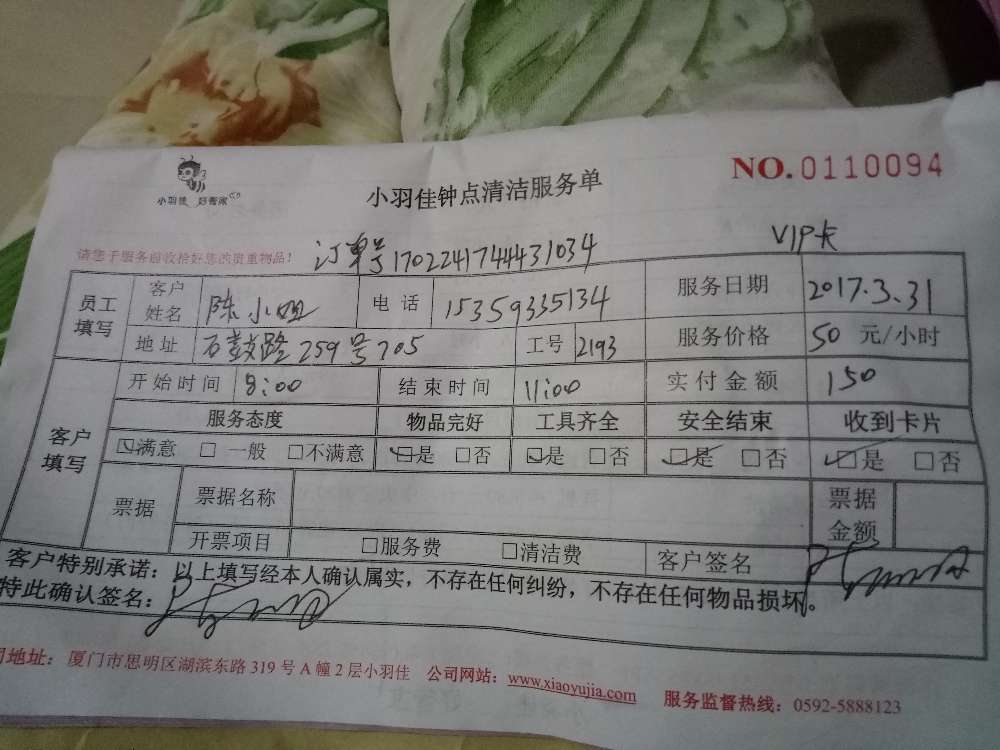 小羽佳 好管家
小羽佳钟点清洁服务单
NO.0110094
请您于服务前收拾好您的贵重物品!
订单号1702241744431034
VIP卡
员工填写 客户姓名 陈小姐 电话 15359335134 服务日期 2017.3.31
地址 石鼓路259号705 工号 2193 服务价格 50 元/小时
客户填写 开始时间 8:00 结束时间 11:00 实付金额 150
服务态度 物品完好 工具齐全 安全结束 收到卡片
☑满意 □一般 □不满意 ☑是 □否 ☑是 □否 ☑是 □否 ☑是 □否
票据 票据名称 票据金额
开票项目 □服务费 □清洁费 客户签名
客户特别承诺：以上填写经本人确认属实，不存在任何纠纷，不存在任何物品损坏。
特此确认签名：
司地址：厦门市思明区湖滨东路319号A幢2层小羽佳 公司网站：www.xiaoyujia.com 服务监督热线：0592-5888123